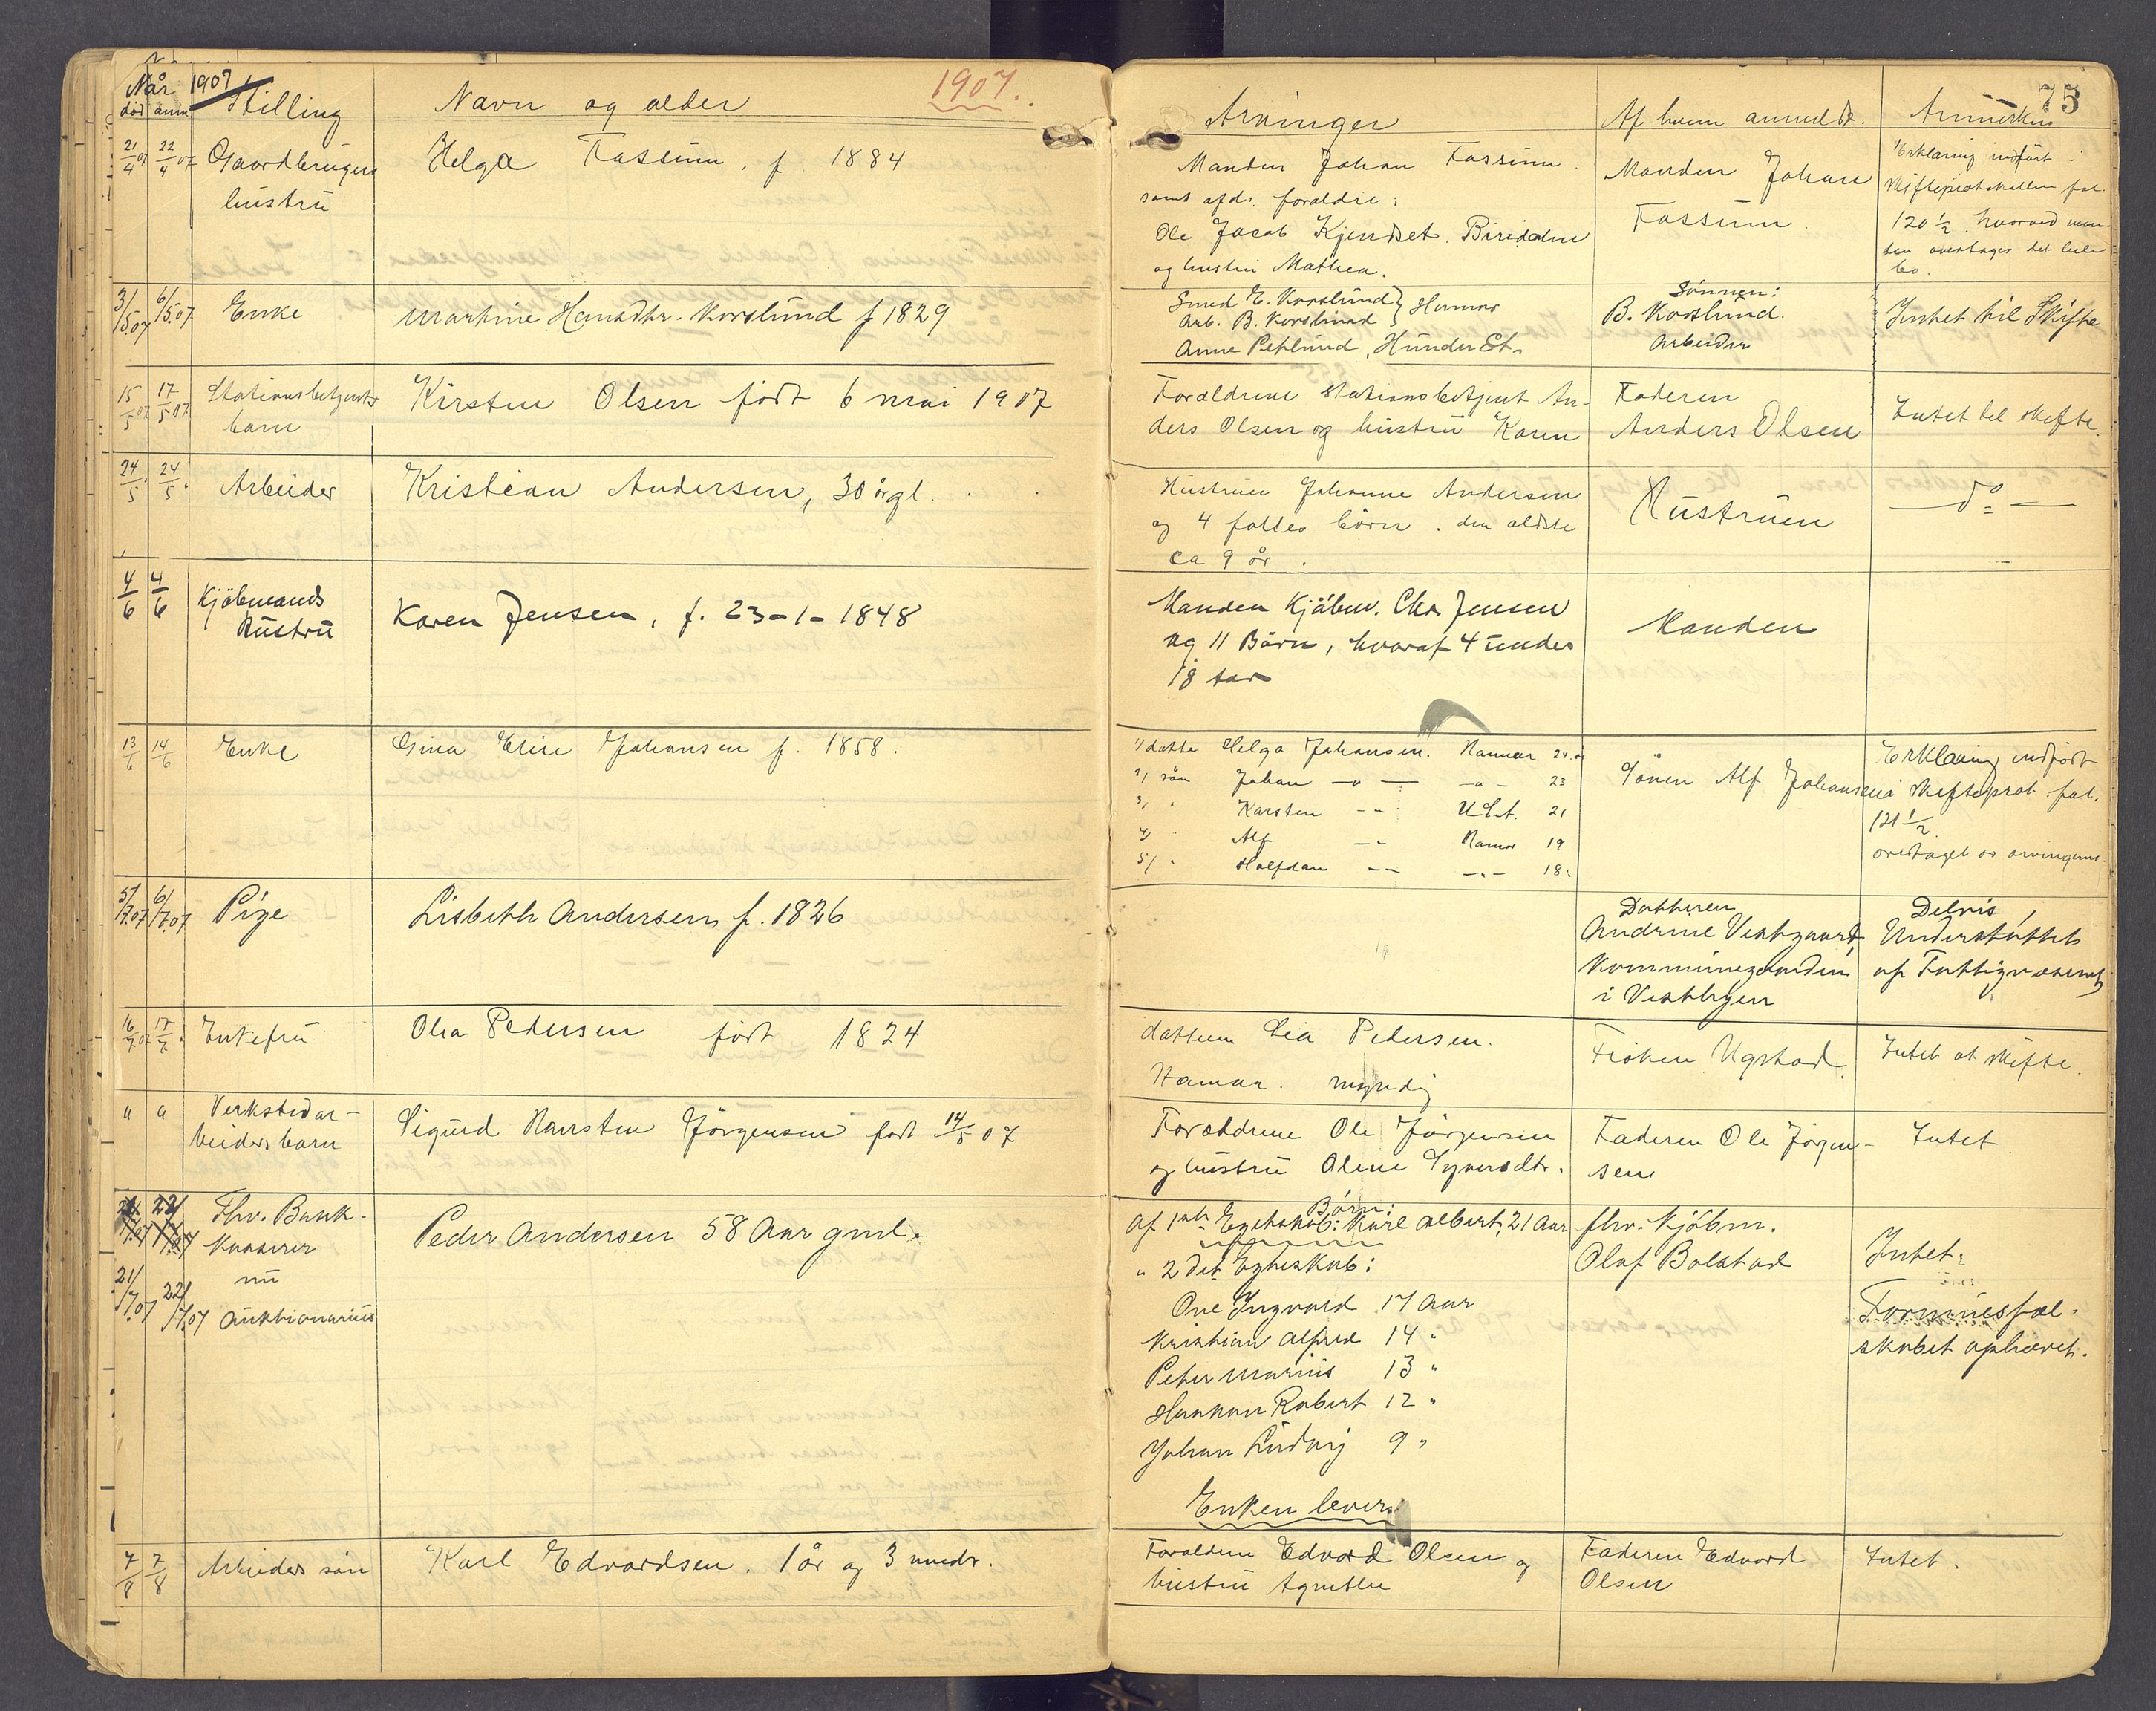 Når 1907
død anm Stilling
Navn og alder
1907.
Arvinger
Af hvem anmeldt.
Anmerkn
75
21/4 07 22/4 07 Gaardbrugers
hustru
Helga Fossum. f 1884
Manden Johan Fossum.
samt afdr. foraldre:
Ole Jacob Kjendset. Biridalen
og hustru Mathea.
Manden Johan
Fossum.
Erklæring indført i
skifteprotokollen fol.
120 1/2. hvorved man-
den overtager det hele
bo.
3/5.07 6/5.07 Enke
Martine Hansdtr. Korslund f 1829
Smed E. Korslund } Hamar
Arb. B. Korslund
Anne Peplund, Hunder St.
Sønnen:
B. Korslund.
Arbeider
Intet til Skifte
15/5 07 17/5 07 Stationsbetjents
barn
Kirsten Olsen født 6 mai 1907
Forældrene stationsbetjent An-
ders Olsen og hustru Karen
Faderen
Anders Olsen
Intet til skifte.
24/5. 24/5. Arbeider
Kristian Andersen, 30 årgl.
Hustruen Johanne Andersen
og 4 fælles børn. den ældste
ca 9 år.
Hustruen
— do —
4/6 4/6 Kjøbmands
Hustru
Karen Jensen, f. 23-1-1848
Manden Kjøbm. Chr. Jensen
og 11 Børn, hvoraf 4 under
18 aar
Manden
13/6 14/6 Enke
Gina Elise Johansen f. 1858.
1/ datter Helga Johansen. Hamar 24 år
2/ søn Johan —„— —„— 23
3/ " Karsten —— U.S.A. 21
4/ " Alf —— Hamar 19
5/ " Halfdan —— —„— 18.
Sønen Alf Johansen
Erklæring indført
i skifteprot. fol.
121 1/2.
overtaget av arvingerne.
5/7.07 6/7.07 Pige
Lisbeth Andersen f. 1826
Datteren
Andrine Vestgaard,
Kommunegaarden
i Vestbyen
Delvis
Understøttet
af Fattigvæsenet
16/7 07 17/7. Enkefru
Olea Pedersen født 1824
datteren Lea Pedersen.
Hamar. myndig
Frøken Ugstad
Intet at skifte.
" " Verkstedar-
beiders barn
Sigurd Karsten Jørgensen født 14/5 07
Forældrene Ole Jørgensen
og hustru Oline Syversdtr.
Faderen Ole Jørgen-
sen
Intet
21/7.07 22/7.07 Fhv. Bank-
Kasserer
nu
Auktionarius
Peder Andersen 58 Aar gml.
Børn:
Af 1ste Egteskab: Karl Albert, 21 Aar
" 2det Egteskab:
Ove Ingvard 17 Aar
Kristian Alfred 14 "
Peter Marius 13 "
Haakon Robert 12 "
Johan Ludvig 9 "
Enken lever.
fhv. Kjøbm.
Olaf Bolstad
Intet.
Formuesfæl-
skabet ophævet.
7/8 7/8 Arbeiders søn
Karl Edvardsen. 1 år og 3 mndr.
Forældrene Edvard Olsen og
hustru Agnethe
Faderen Edvard
Olsen
Intet.